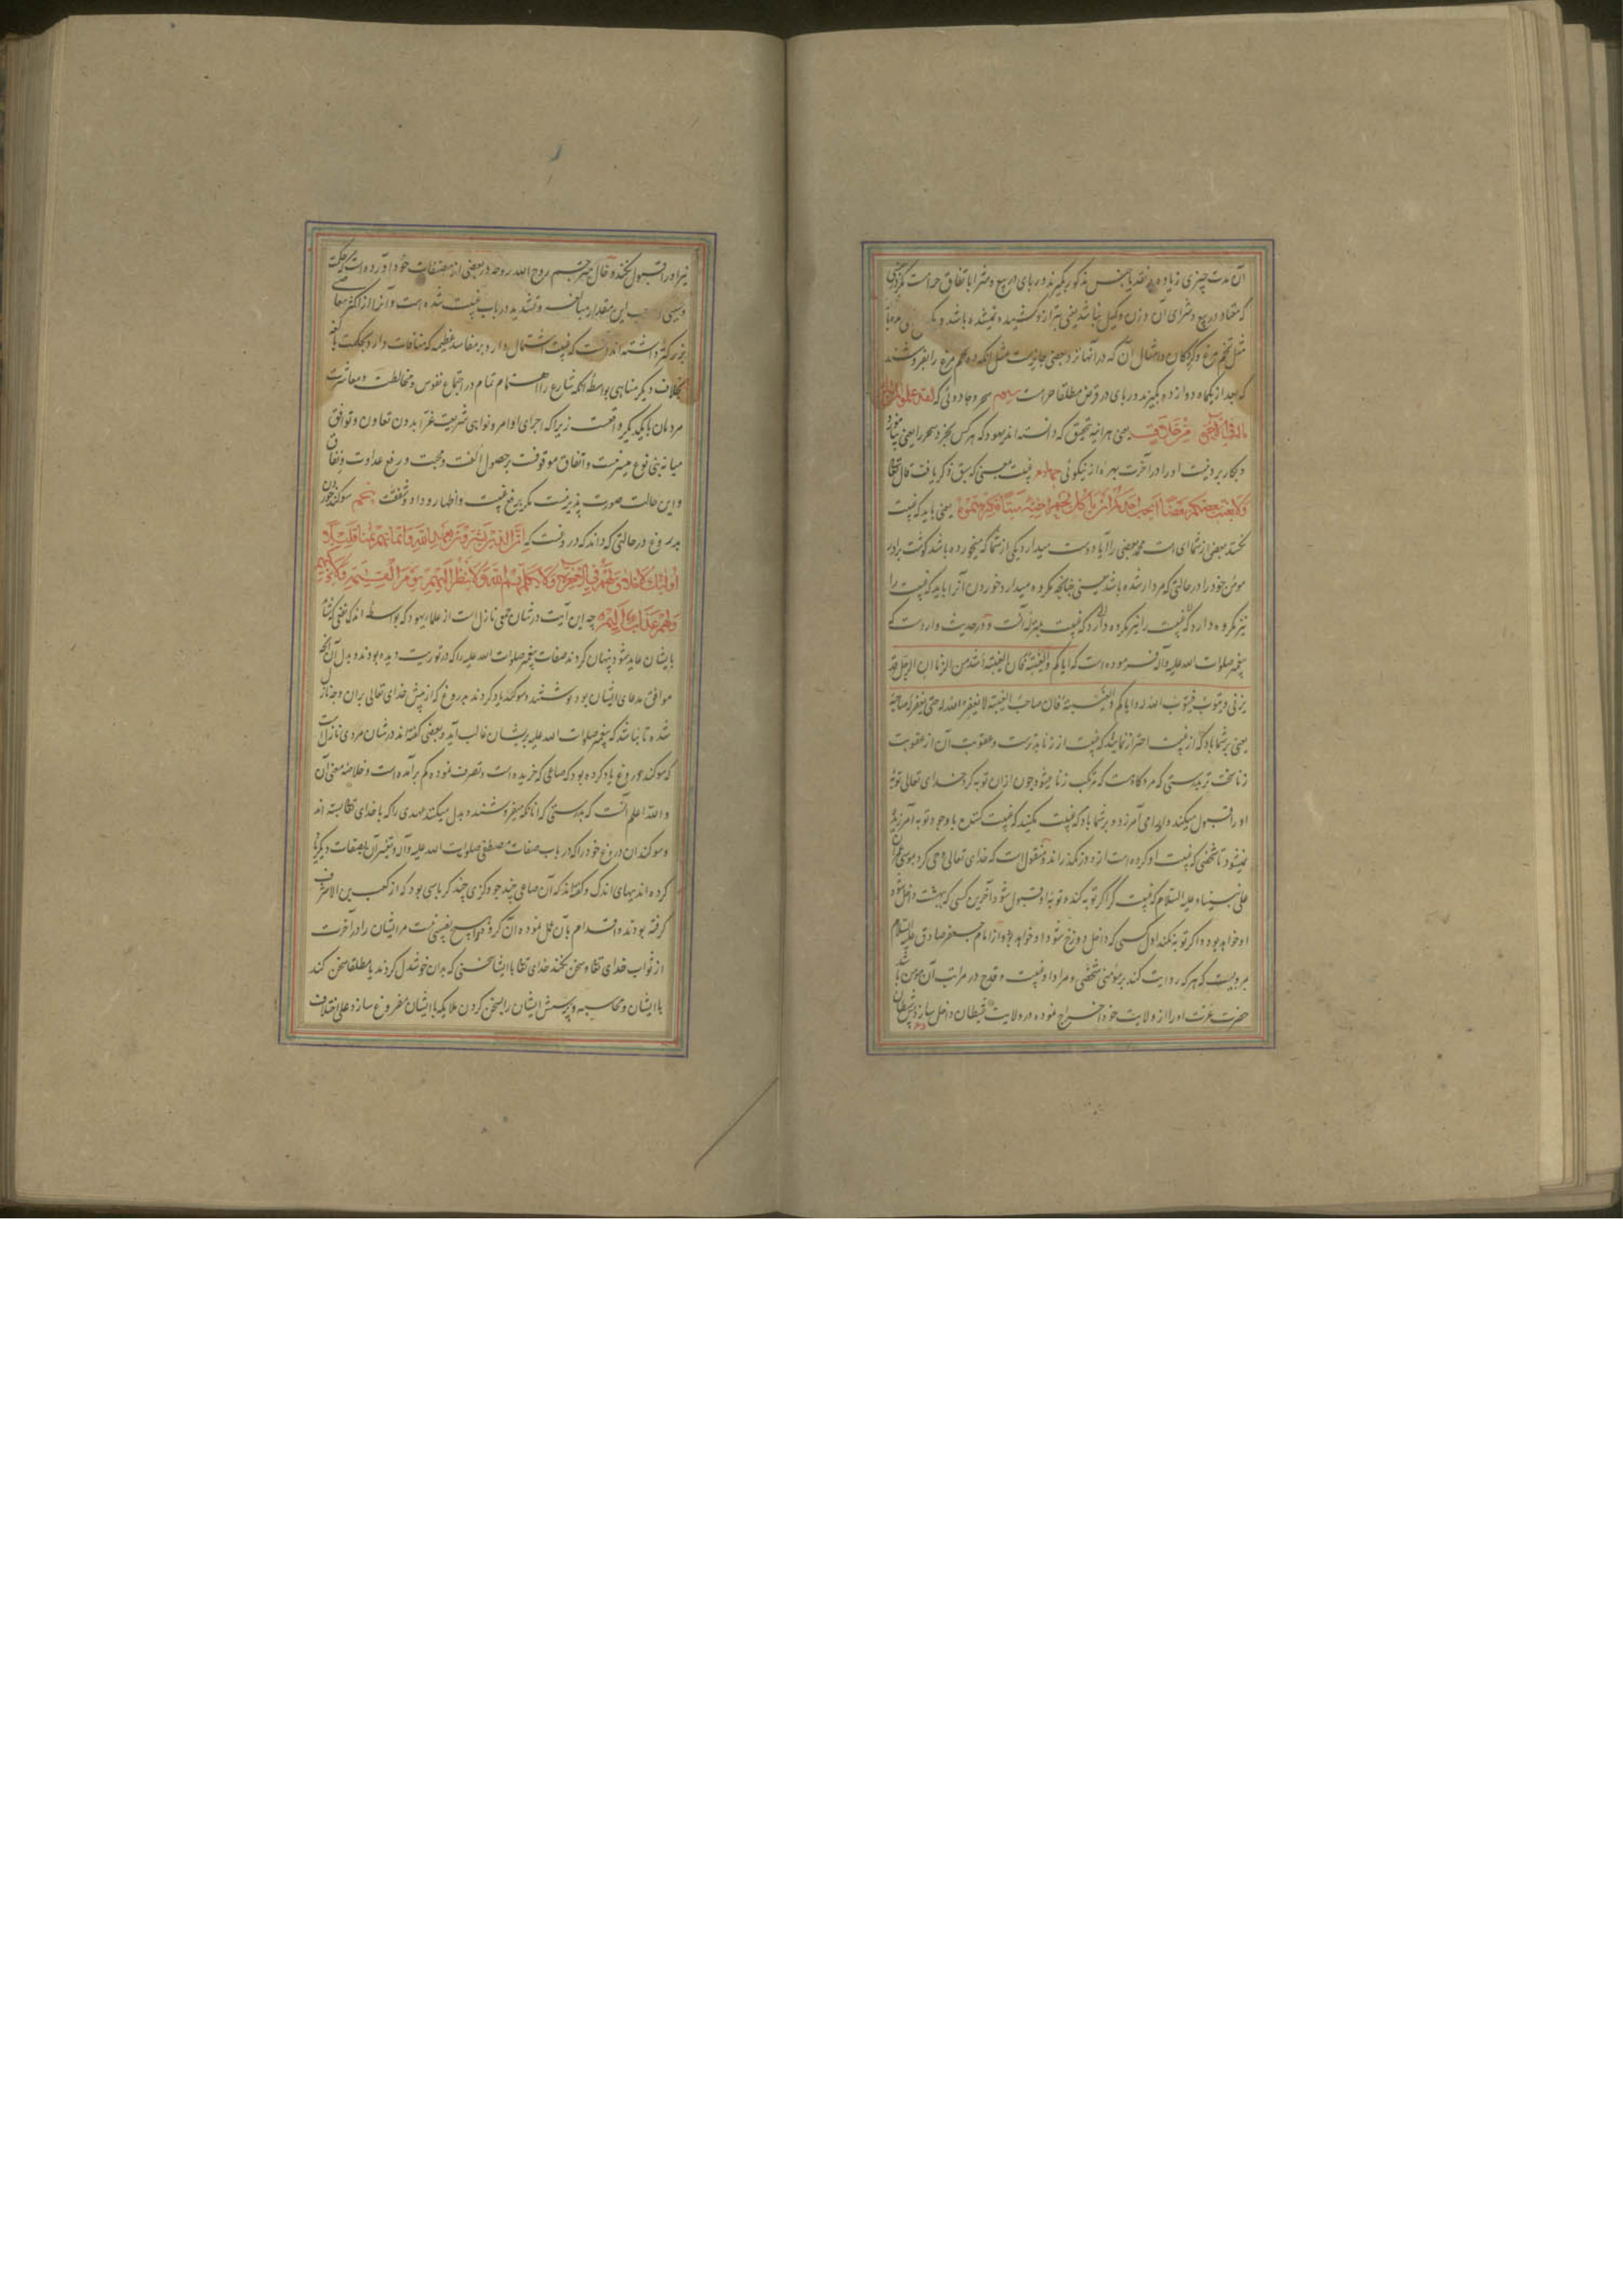 آن مدت چیزی زیاده نقد یا جنس مذکور بگیرند و ربای در بیع و شرا باتفاق حرامست مگر در
که معتاد در بیع و شرای آن وزن و کیل نباشد یعنی بترازو کشیده نمیشده باشد و
مثل تخم مرغ و گردکان و امثال آن که در آنها نزد بعضی جایزست مثل آنکه ده تخم مرغ را بفروشند
که بعد از یکماه دوازده بگیرند و ربای در قرض مطلقا حرامست سیوم سحر و جادوئی که
فی الآخرة من خلاق یعنی هرآینه بتحقیق که دانسته اند یهود که هرکس بخرد سحر را یعنی
و بکار برد نیست او را در آخرت بهره از نیکوئی چهارم غیبت بمعنی که سبق ذکر یافت قال تعالی
ولا یغتب بعضکم بعضا ایحب احدکم ان یاکل لحم اخیه میتا فکرهتموه یعنی باید که غیبت
نکند بعضی از شما ای امت محمد بعضی را آیا دوست میدارد یکی از شما که میخورده باشد گوشت برادر
مومن خود را در حالتی که مردار شده باشد یعنی چنانچه مکروه میدارد خوردن آنرا باید که غیبت را
نیز مکروه دارد که غیبت بمنزله آنست و در حدیث واردست که
پیغمبر صلوات الله علیه و آله فرموده است که ایاکم والغیبة فان الغیبة اشد من الزنا ان الرجل قد
یزنی و یتوب فیتوب الله له و ایاکم والغیبة فان صاحب الغیبة لا یغفر الله له حتی یغفر له صاحبه
یعنی بر شما باد که از غیبت احتراز نمایید که غیبت از زنا بدترست و عقوبت آن از عقوبت
زنا سخت تر بدرستی که مرد گاه هست که مرتکب زنا میشود چون از آن توبه کرد خدای تعالی توبه
او را قبول میکند و او را می آمرزد و بر شما باد که غیبت نکنید که غیبت کننده با وجود توبه آمرزیده
نمیشود تا شخصی که غیبت او کرده است ازو درنگذراند و منقول است که خدای تعالی وحی کرد بموسی
علی نبینا و علیه السلام که غیبت گر اگر توبه کند و توبه او قبول شود آخرین کسی که ببهشت داخل شود
او خواهد بود و اگر توبه نکند اول کسی که داخل دوزخ شود او خواهد بود و از امام جعفر صادق علیه السلام
مرویست که هرکه روایت کند بر مؤمنی شخصی و مراد او غیبت و قدح در مراتب آن مومن باشد
حضرت عزت او را از ولایت خود اخراج نموده در ولایت شیطان داخل سازد پس شیطان
نیز او را قبول نکند و خال مترجم روح الله روحه در بعضی از مصنفات خود آورده است که حکمت
این مقدار مبالغه و تشدید در باب غیبت شده است و آنرا از اکثر معاصی
بزرگتر داشته اند آنست که غیبت اشتمال دارد بر مفاسد عظیمه که منافات دارد بحکمت بالغه
بخلاف دیگر مناهی بواسطه آنکه شارع را اهتمام تمام در اجتماع نفوس و مخالطت و معاشرت
مردمان با یکدیگر واقعست زیرا که اجرای اوامر و نواهی شریعت غرا بدون تعاون و توافق
میانه بنی نوع میسر نیست و اتفاق موقوفست بر حصول الفت و محبت و رفع عداوت و نفاق
و این حالت صورت پذیر نیست مگر برفع غیبت و اظهار وداد و شفقت پنجم سوگند خوردن
بدروغ در حالتی که داند که دروغست که ان الذین یشترون بعهد الله و ایمانهم ثمنا قلیلا
اولئک لا خلاق لهم فی الآخرة ولا یکلمهم الله ولا ینظر الیهم یوم القیمة ولا یزکیهم
ولهم عذاب الیم چه این آیت در شان جمعی نازل است از علماء یهود که بواسطه اندک نفعی که
بایشان عاید شود پنهان کردند صفات پیغمبر صلوات الله علیه را که در توریت دیده بودند و بدل آن آنچه
موافق مدعای ایشان بود نوشتند و سوگند یاد کردند بدروغ که از پیش خدای تعالی بران وجه نازل
شده تا نباشد که پیغمبر صلوات الله علیه بر ایشان غالب آید و بعضی گفته اند در شان مردی نازلست
که سوگند دروغ یاد کرده بود که متاعی که خریده است و تصرف نموده کم برآمده است و خلاصه معنی آن
والله اعلم آنست که بدرستی که آنانکه میفروشند و بدل میکنند عهدی را که با خدای تعالی بسته اند
و سوگندان دروغ خود را که در باب صفات مصطفی صلوات الله علیه و آله و تغییر آن بصفات دیگر یاد
کرده اند ببهای اندک و گفته اند که آن صاعی چند جو و گزی چند کرباسی بود که از کعب بن الاشرف
گرفته بودند و اقدام بآن عمل نموده آن گروه هیچ نصیبی نیست مر ایشان را در آخرت
از ثواب خدای تعالی و سخن نکند خدای تعالی با ایشان سخنی که بدان خوشدل گردند یا مطلقا سخن نکند
با ایشان و محاسبه و پرسش ایشان را بسخن کردن ملایکه با ایشان مفروغ سازد علی اختلاف